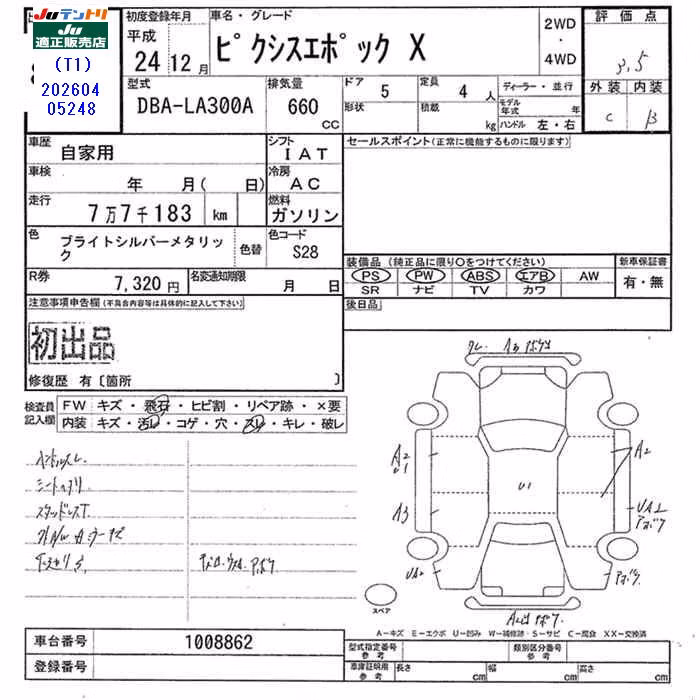 Juテントリ
Ju適正販売店
(T1)
202604
05248
初度登録年月
平成
24 12月
車名・グレード
ピクシスエポック X
2WD
・
4WD
評価点
3.5
外装 内装
C B
型式
DBA-LA300A
排気量
660
CC
ドア 5
形状
定員 4 人
積載 kg
ディーラー・並行
モデル年式 年
ハンドル 左・右
車歴
自家用
シフト
IAT
車検
年 月( 日)
冷房
AC
走行
7万7千183 km
燃料
ガソリン
色
ブライトシルバーメタリック
色替
色コード
S28
R券
7,320円
名変通知期限
月 日
セールスポイント(正常に機能するものに限ります)
装備品(純正品に限り○をつけてください)
PS PW ABS エアB AW
SR ナビ TV カワ
新車保証書
有・無
後日品
注意事項申告欄(不具合内容等は具体的に記入して下さい)
初出品
修復歴 有〔箇所 〕
検査員記入欄
FW キズ・飛石・ヒビ割・リペア跡・×要
内装 キズ・汚レ・コゲ・穴・スレ・キレ・破レ
A2
U1
A3
UA2
U1
A2
スペア
A-キズ E-エクボ U-凹み W-補修跡・S-サビ C-腐食 XX-交換済
車台番号
1008862
登録番号
型式指定番号
参考
類別区分番号
参考
車庫証明用
参考
長さ cm
幅 cm
高さ cm